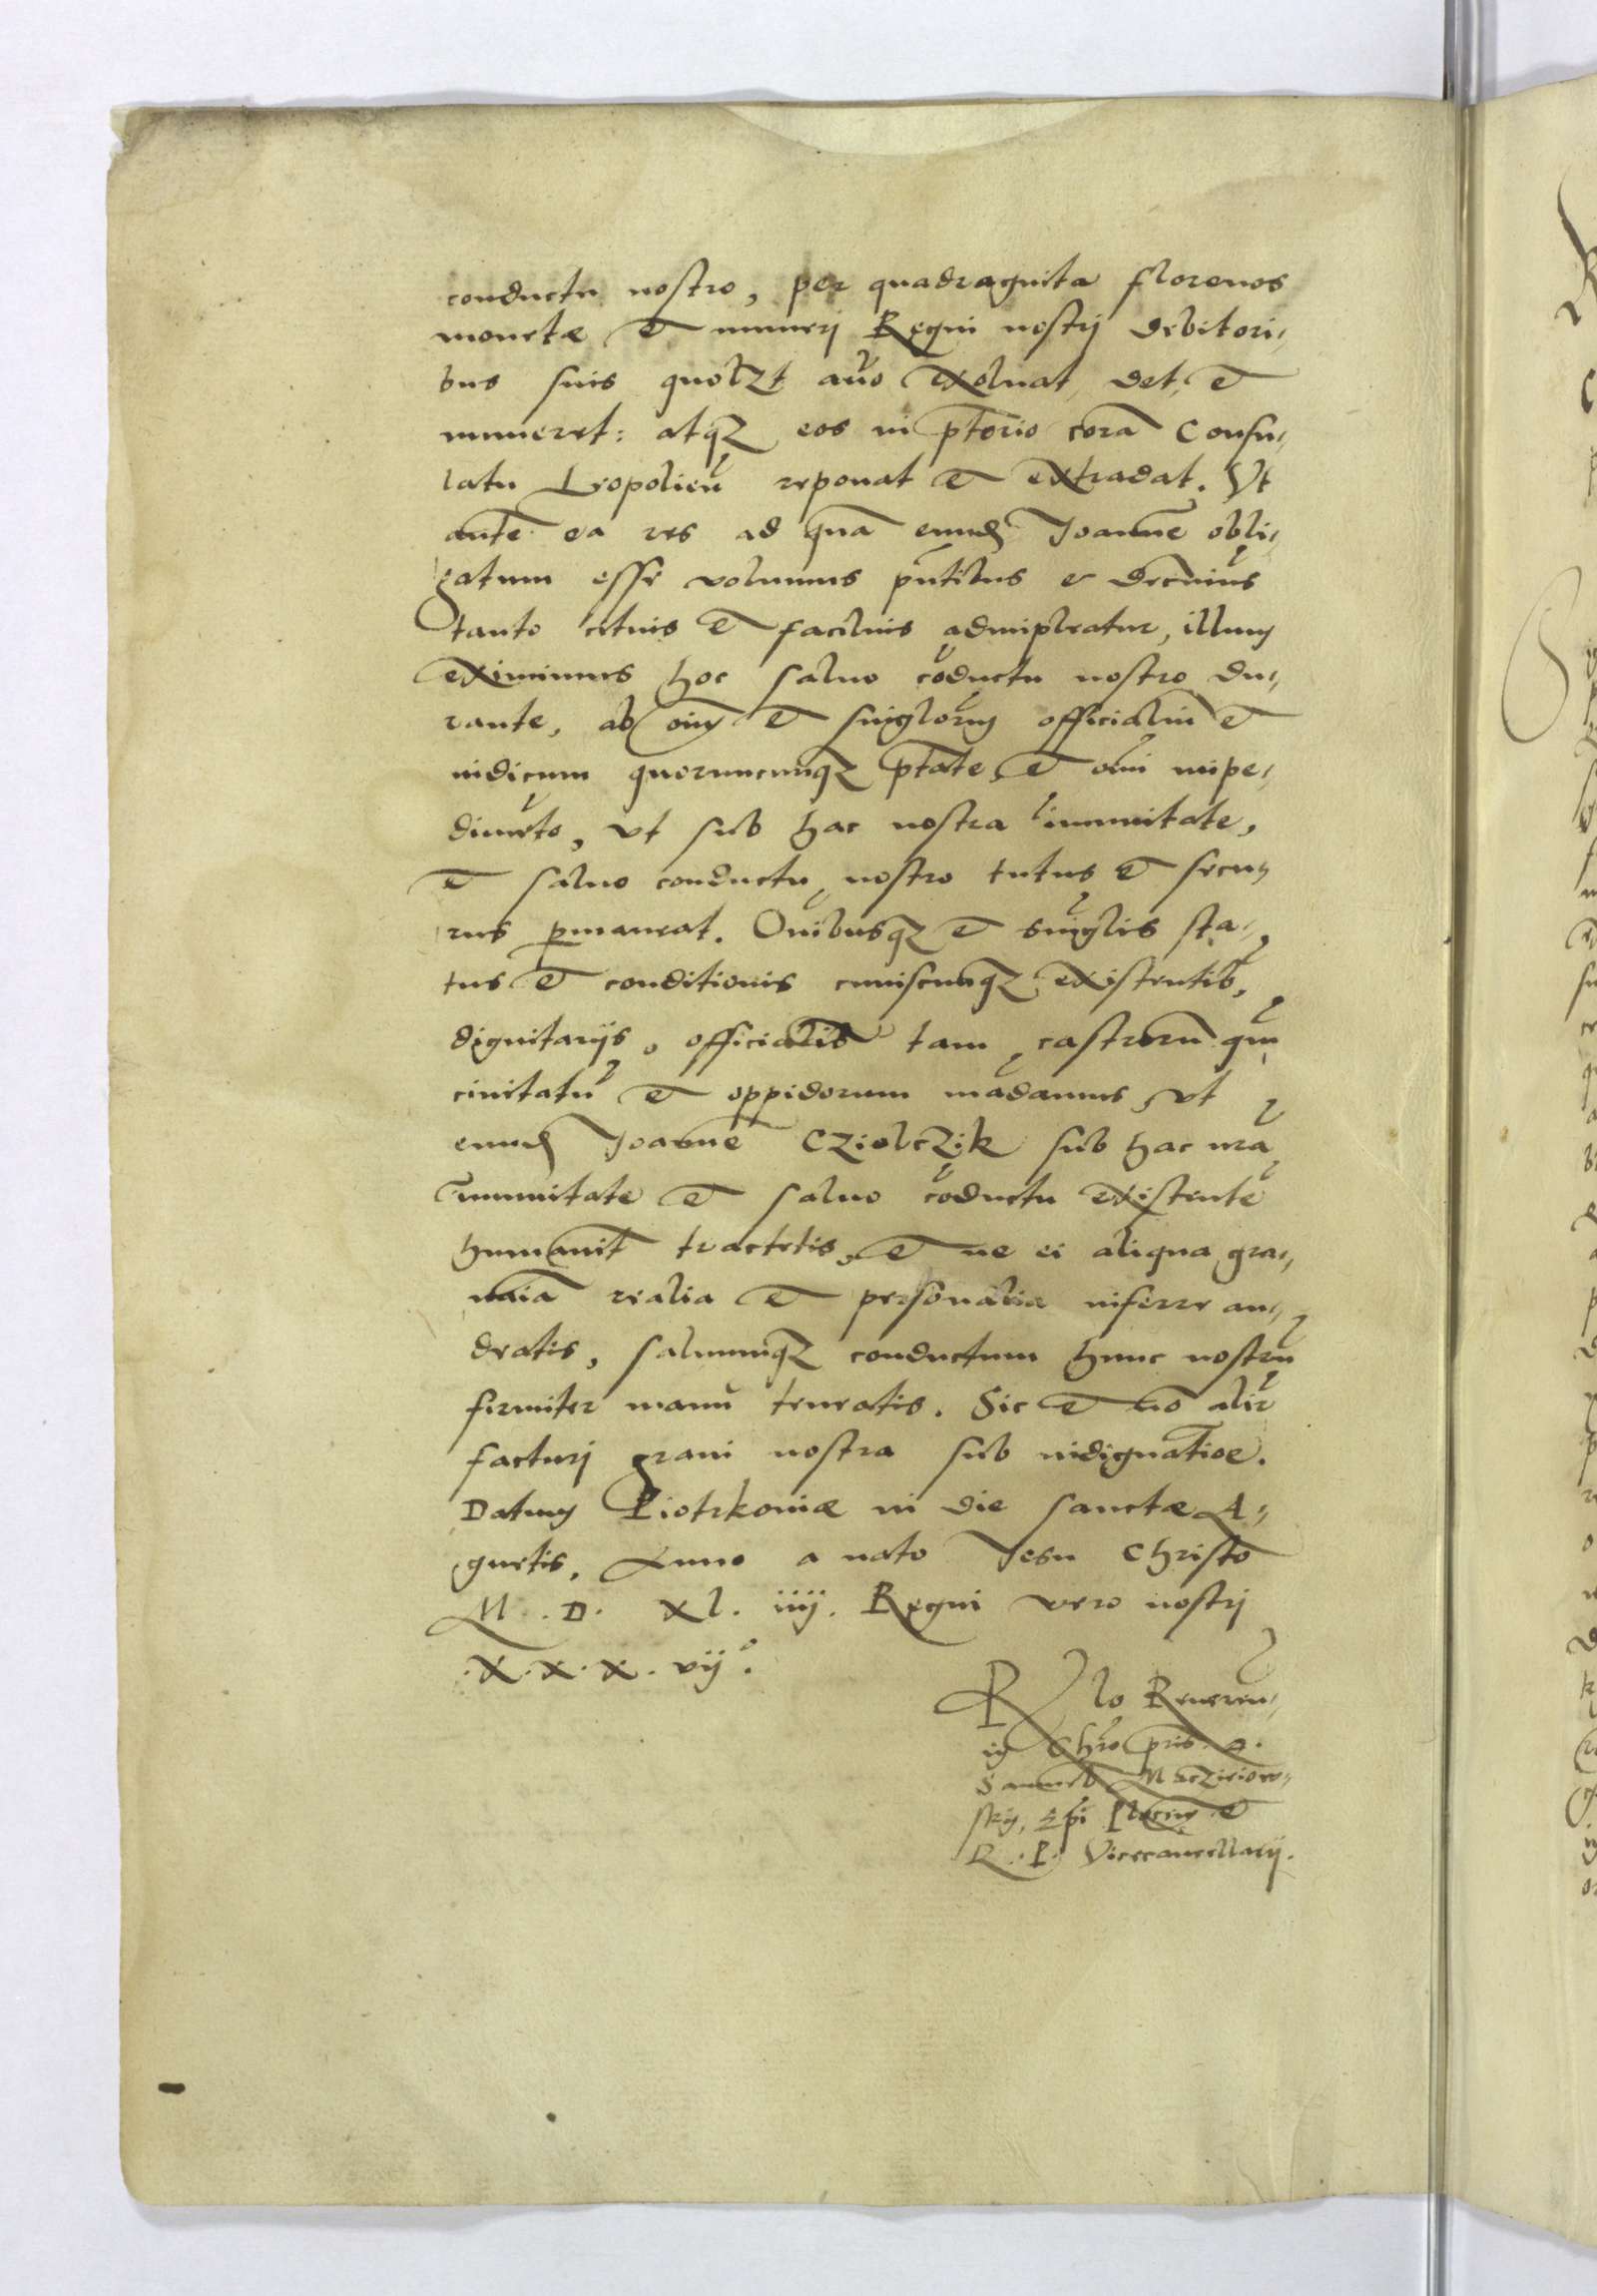 conductu nostro, per quadraginta florenos
monetæ et numeri Regni nostri debitori-
bus suis quolz̃t anno exoluat, det, et
numeret: atqꝫ eos in p̃torio corã Consu-
latu Leopolieñ reponat et extradat. Vt
autẽ ea res ad quã eund̃ Joannẽ obli-
gatum esse volumus p̃ntibus & decrinus
tanto citius et facilius adimpleatur, illum
eximimus hoc saluo cõductu nostro du-
rante, ab oĩm et singlorum officialiũ et
iudicum quorumcunqꝫ p̃tate, et om̃i impe-
dimẽto, vt sub hac nostra immunitate,
et saluo conductu nostro tutus et secu-
rus ꝑmaneat. Om̃ibusqꝫ et singlis sta-
tus et conditionis cuiuscunqꝫ existentib,
dignitarijs, officialib tam castrorũ quã
ciuitatũ et oppidorum mãdamus, vt
eund̃ Joannẽ Cziolczik sub hac nr̃a
immunitate et saluo cõductu existentẽ
humanit̃ tractetis, et ne ei aliqua gra-
uaĩa realia et personalia inferre au-
deatis, saluumqꝫ conductum hunc nostrũ
firmiter manu teneatis. Sic et nõ alir̃
facturi graui nostra sub indignatiõe.
Datum Piotrkouiæ in die sanctæ A-
gnetis, Anno a nato Jesu Christo
M. D. xl. iiij. Regni vero nostri
.x.x.x.vij°.
R̃lo Reueren-
in Chr̃o pr̃is. D.
Samuelis Maczieiow-
skij, Ep̃i Plocen̄ et
R. P. Vicecancellarij.